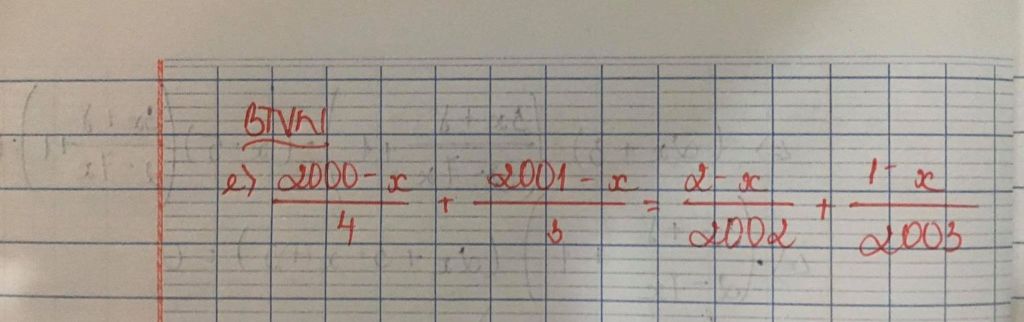 BTVN
e) (2000 - x)/4 + (2001 - x)/3 = (2 - x)/2002 + (1 - x)/2003